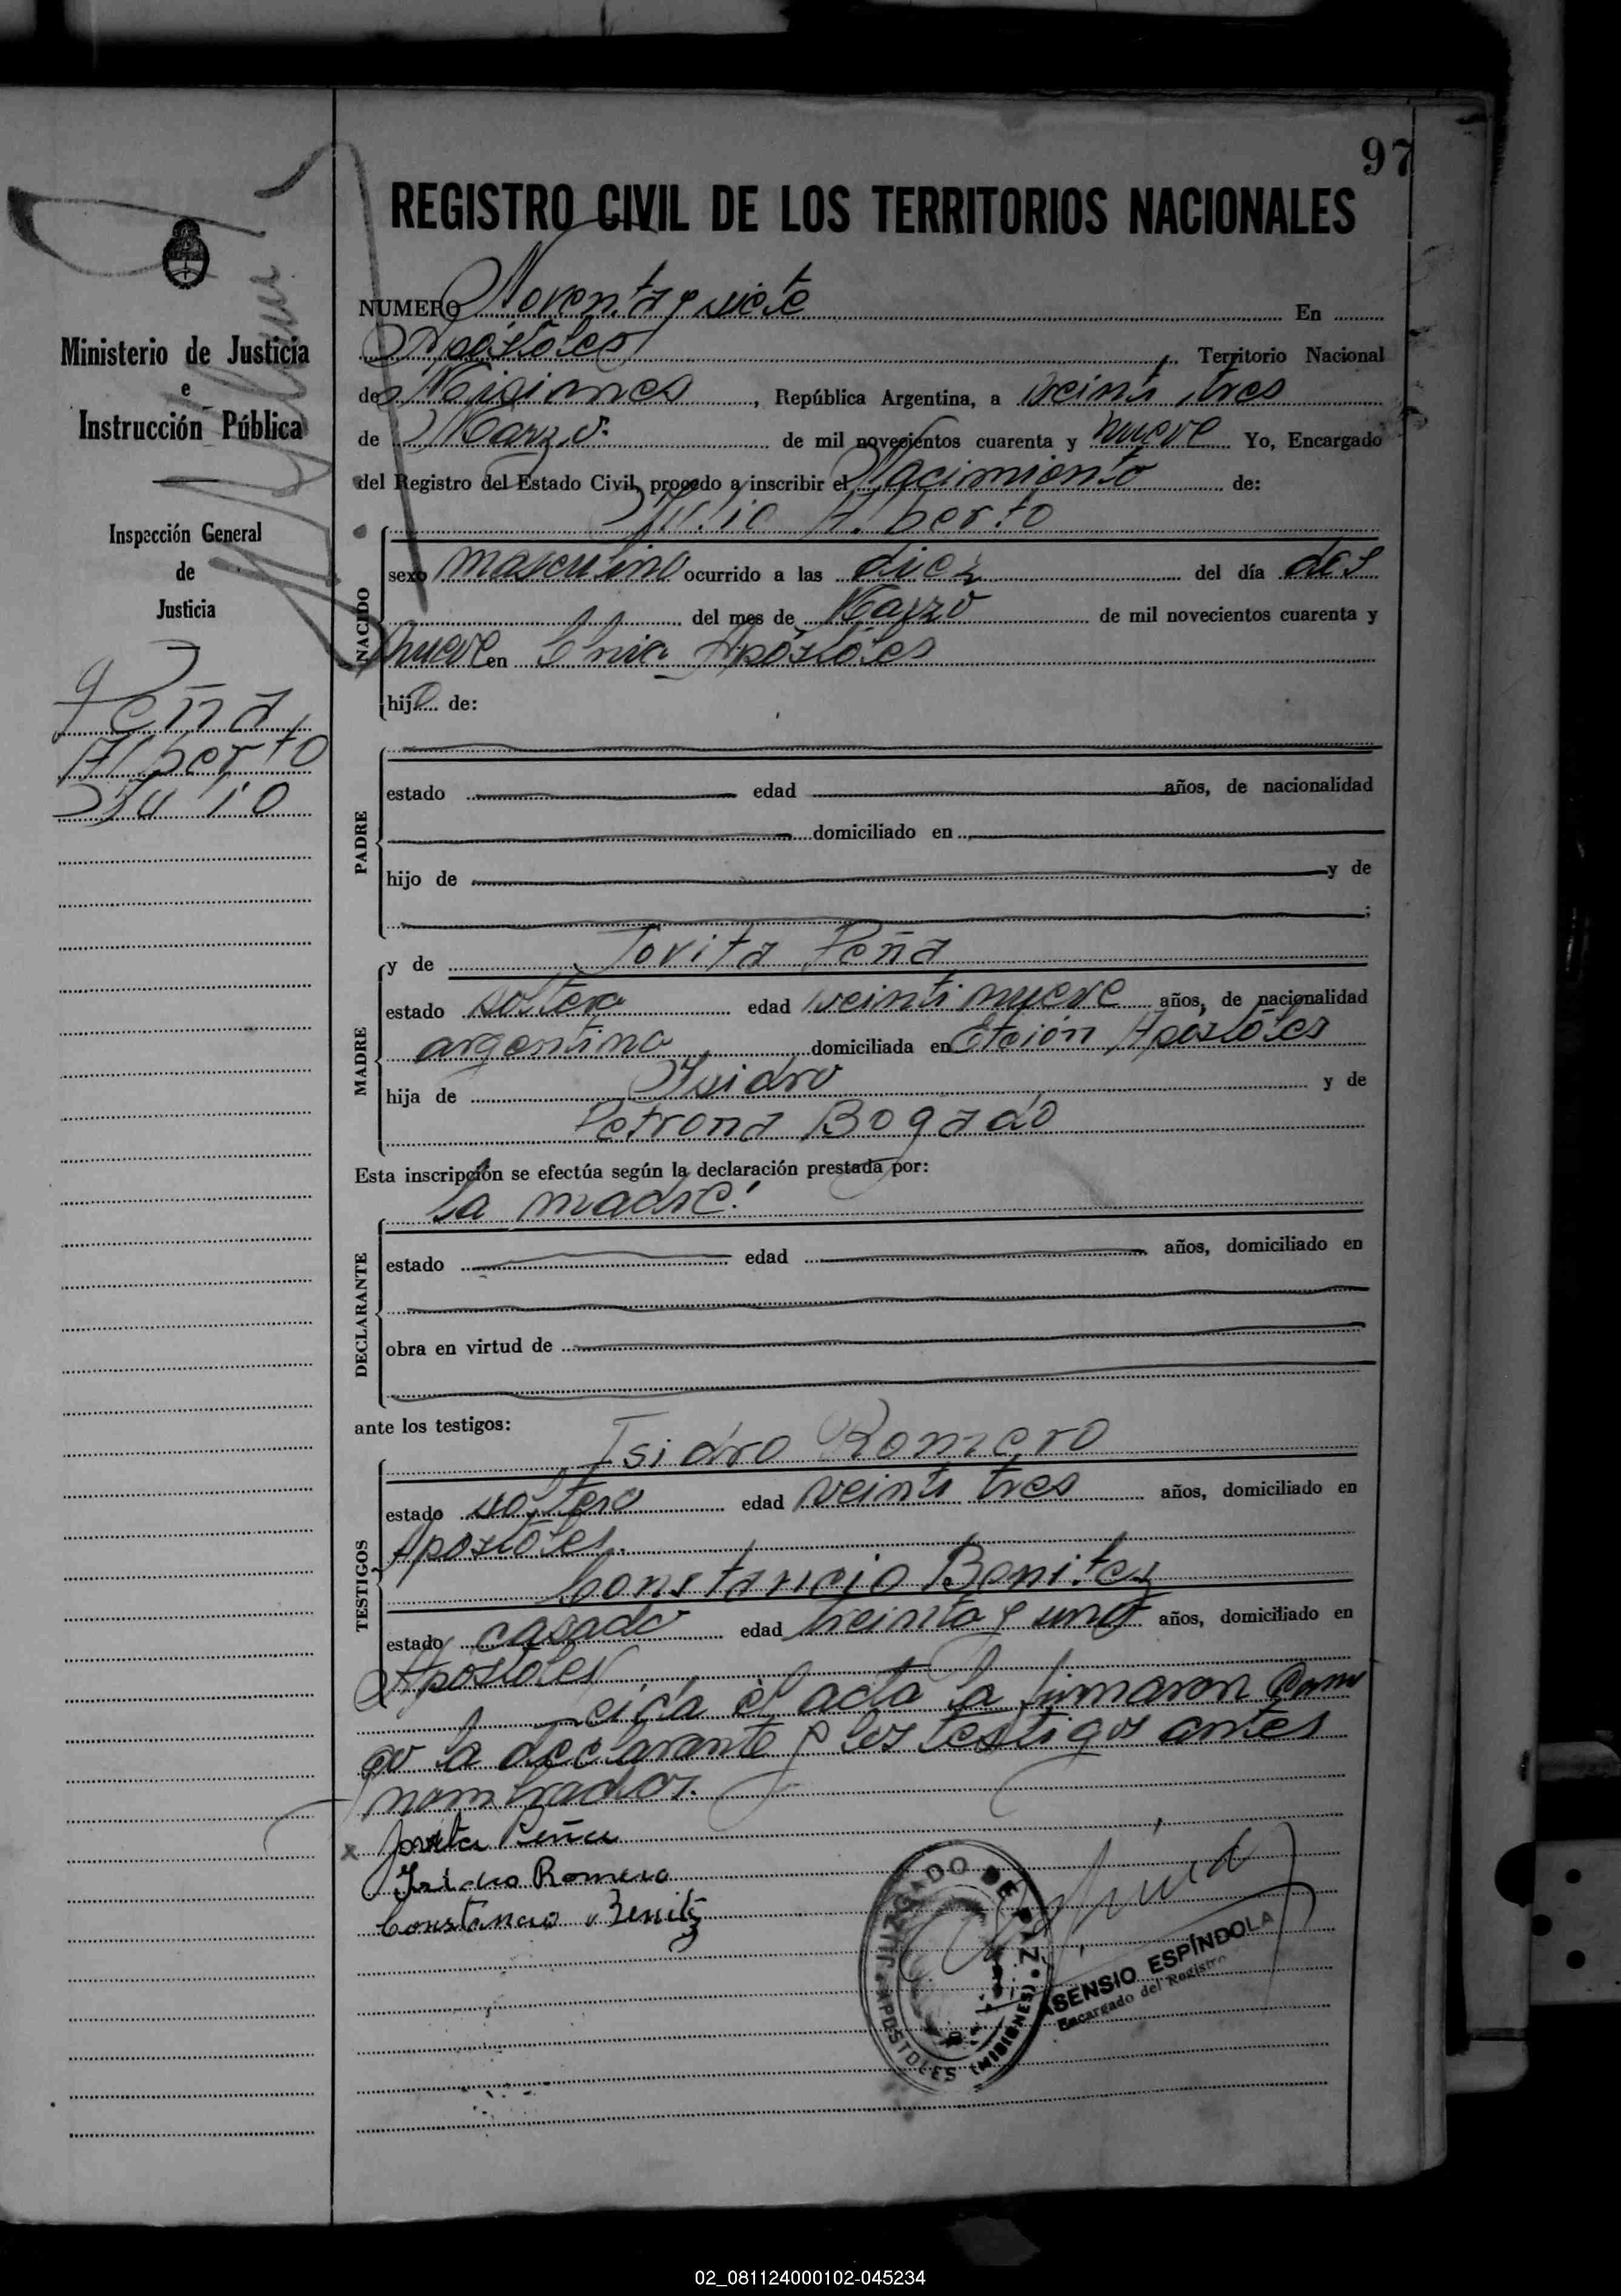 97
REGISTRO CIVIL DE LOS TERRITORIOS NACIONALES
NUMERO Noventa y siete En
Apóstoles Territorio Nacional
de Misiones, República Argentina, a veinti tres
de Marzo de mil novecientos cuarenta y nueve Yo, Encargado
del Registro del Estado Civil, procedo a inscribir el Nacimiento de:
Julio Alberto
NACIDO
sexo masculino ocurrido a las diez del día dos
del mes de Marzo de mil novecientos cuarenta y
nueve en Cnia Apóstoles
hijo de:
PADRE
estado edad años, de nacionalidad
domiciliado en
hijo de y de
MADRE
y de Jovita Peña
estado soltera edad veinti nueve años, de nacionalidad
argentina domiciliada en Etción Apóstoles
hija de Isidro y de
Petrona Bogado
Esta inscripción se efectúa según la declaración prestada por:
la madre.
DECLARANTE
estado edad años, domiciliado en
obra en virtud de
ante los testigos:
TESTIGOS
Isidro Romero
estado soltero edad veinti tres años, domiciliado en
Apóstoles.
Constancio Benitez
estado casado edad treinta y uno años, domiciliado en
Apóstoles
Leida el acta la firmaron conmi
go la declarante y los testigos antes
nombrados.
x Jovita Peña
Isidro Romero
Constancio Benitez
JUZGADO DE PAZ
APOSTOLES (MISIONES)
ASENSIO ESPÍNDOLA
Encargado del Registro
Ministerio de Justicia
e
Instrucción Pública
Inspección General
de
Justicia
Peña
Alberto
Julio
02_081124000102-045234